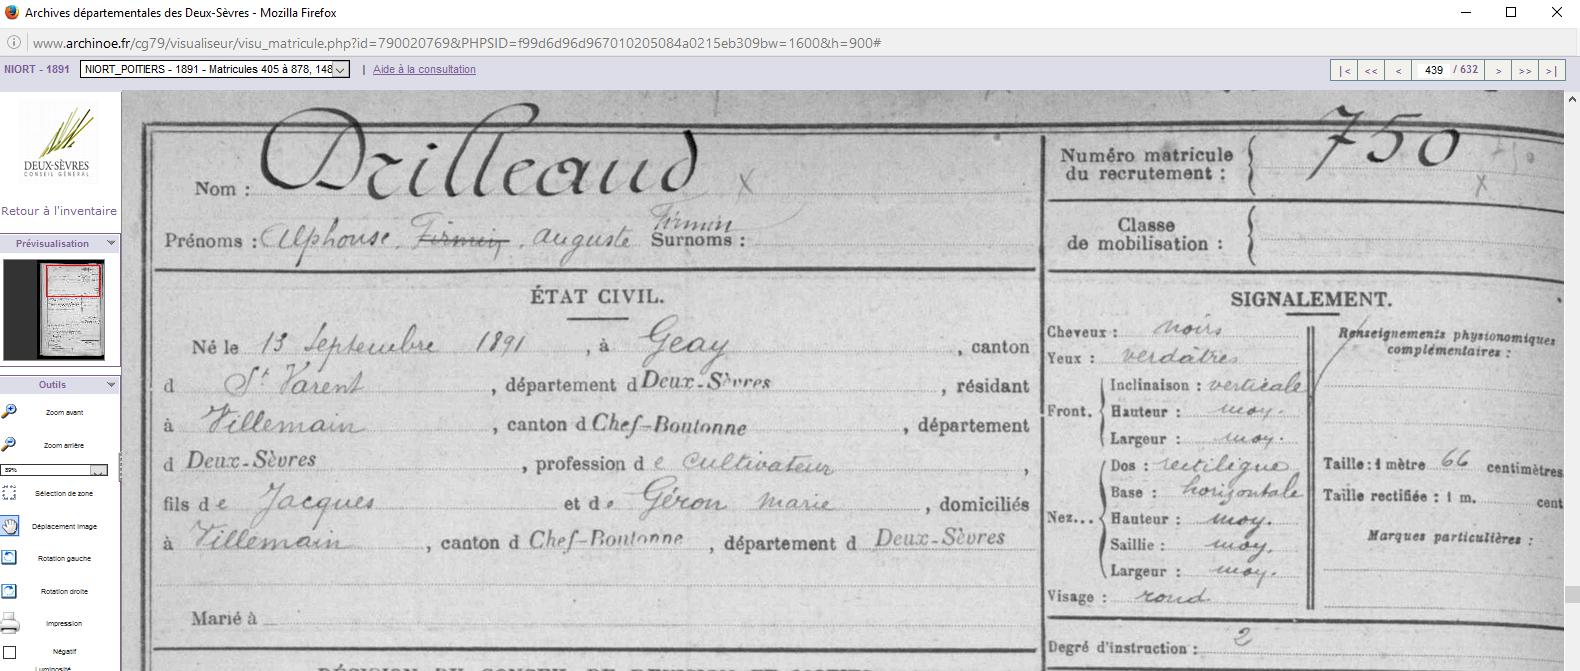 Archives départementales des Deux-Sèvres - Mozilla Firefox
www.archinoe.fr/cg79/visualiseur/visu_matricule.php?id=790020769&PHPSID=f99d6d96d967010205084a0215eb309bw=1600&h=900#
NIORT - 1891 NIORT_POITIERS - 1891 - Matricules 405 à 878, 148 | Aide à la consultation |< << < 439 / 632 > >> >|
DEUX-SÈVRES
CONSEIL GÉNÉRAL
Retour à l'inventaire
Prévisualisation
Outils
Zoom avant
Zoom arrière
89%
Sélection de zone
Déplacement image
Rotation gauche
Rotation droite
Impression
Négatif
Luminosité
Nom : Drilleaud x
Prénoms : Alphonse, Firmin, Auguste Surnoms : Firmin
ÉTAT CIVIL.
Né le 13 Septembre 1891, à Geay, canton
d St Varent, département d Deux-Sèvres, résidant
à Villemain, canton d Chef-Boutonne, département
d Deux-Sèvres, profession de cultivateur,
fils de Jacques et de Géron marie, domiciliés
à Villemain, canton d Chef-Boutonne, département d Deux-Sèvres
Marié à
Numéro matricule
du recrutement : 750 750
x
Classe
de mobilisation :
SIGNALEMENT.
Cheveux : noirs
Yeux : verdâtres
Front. Inclinaison : verticale
Hauteur : moy.
Largeur : moy.
Nez... Dos : rectiligne
Base : horizontale
Hauteur : moy.
Saillie : moy.
Largeur : moy.
Visage : rond
Renseignements physionomiques
complémentaires :
Taille : 1 mètre 66 centimètres
Taille rectifiée : 1 m. cent
Marques particulières :
Degré d'instruction : 2